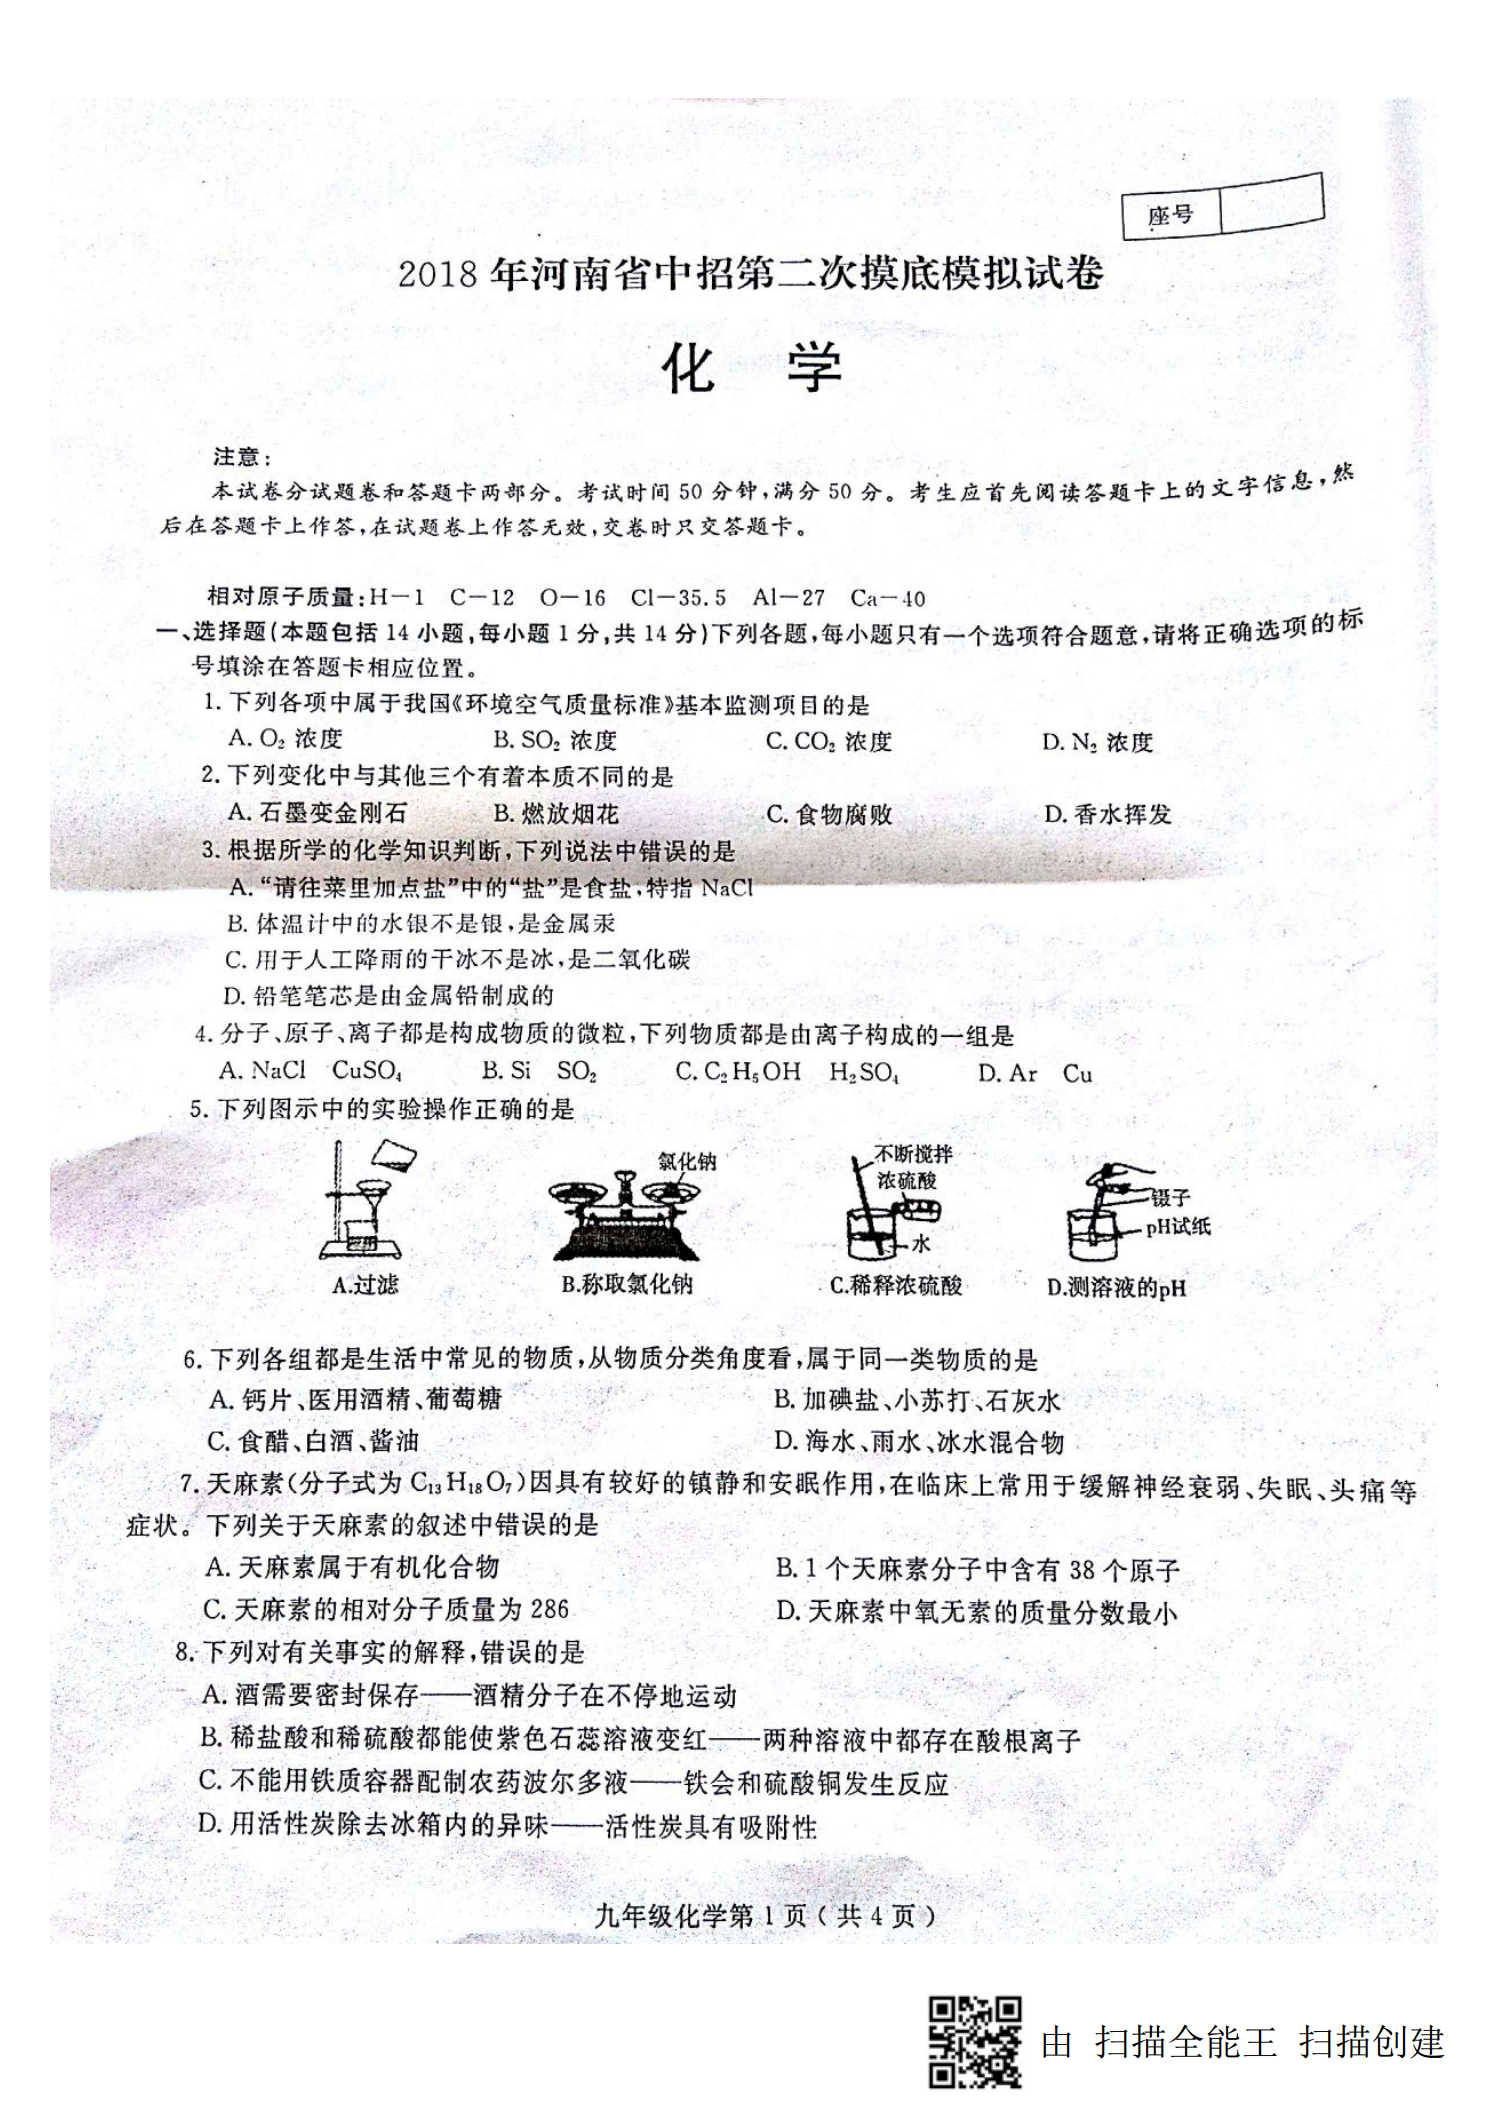 座号
2018 年河南省中招第二次摸底模拟试卷
化 学
注意：
本试卷分试题卷和答题卡两部分。考试时间 50 分钟，满分 50 分。考生应首先阅读答题卡上的文字信息，然
后在答题卡上作答，在试题卷上作答无效，交卷时只交答题卡。
相对原子质量：H－1 C－12 O－16 Cl－35.5 Al－27 Ca－40
一、选择题（本题包括 14 小题，每小题 1 分，共 14 分）下列各题，每小题只有一个选项符合题意，请将正确选项的标
号填涂在答题卡相应位置。
1. 下列各项中属于我国《环境空气质量标准》基本监测项目的是
A. O₂ 浓度 B. SO₂ 浓度 C. CO₂ 浓度 D. N₂ 浓度
2. 下列变化中与其他三个有着本质不同的是
A. 石墨变金刚石 B. 燃放烟花 C. 食物腐败 D. 香水挥发
3. 根据所学的化学知识判断，下列说法中错误的是
A. “请往菜里加点盐”中的“盐”是食盐，特指 NaCl
B. 体温计中的水银不是银，是金属汞
C. 用于人工降雨的干冰不是冰，是二氧化碳
D. 铅笔笔芯是由金属铅制成的
4. 分子、原子、离子都是构成物质的微粒，下列物质都是由离子构成的一组是
A. NaCl CuSO₄ B. Si SO₂ C. C₂H₅OH H₂SO₄ D. Ar Cu
5. 下列图示中的实验操作正确的是
氯化钠
不断搅拌
浓硫酸
水
镊子
pH试纸
A.过滤 B.称取氯化钠 C.稀释浓硫酸 D.测溶液的pH
6. 下列各组都是生活中常见的物质，从物质分类角度看，属于同一类物质的是
A. 钙片、医用酒精、葡萄糖 B. 加碘盐、小苏打、石灰水
C. 食醋、白酒、酱油 D. 海水、雨水、冰水混合物
7. 天麻素（分子式为 C₁₃H₁₈O₇）因具有较好的镇静和安眠作用，在临床上常用于缓解神经衰弱、失眠、头痛等
症状。下列关于天麻素的叙述中错误的是
A. 天麻素属于有机化合物 B. 1 个天麻素分子中含有 38 个原子
C. 天麻素的相对分子质量为 286 D. 天麻素中氧无素的质量分数最小
8. 下列对有关事实的解释，错误的是
A. 酒需要密封保存——酒精分子在不停地运动
B. 稀盐酸和稀硫酸都能使紫色石蕊溶液变红——两种溶液中都存在酸根离子
C. 不能用铁质容器配制农药波尔多液——铁会和硫酸铜发生反应
D. 用活性炭除去冰箱内的异味——活性炭具有吸附性
九年级化学第 1 页（共 4 页）
由 扫描全能王 扫描创建